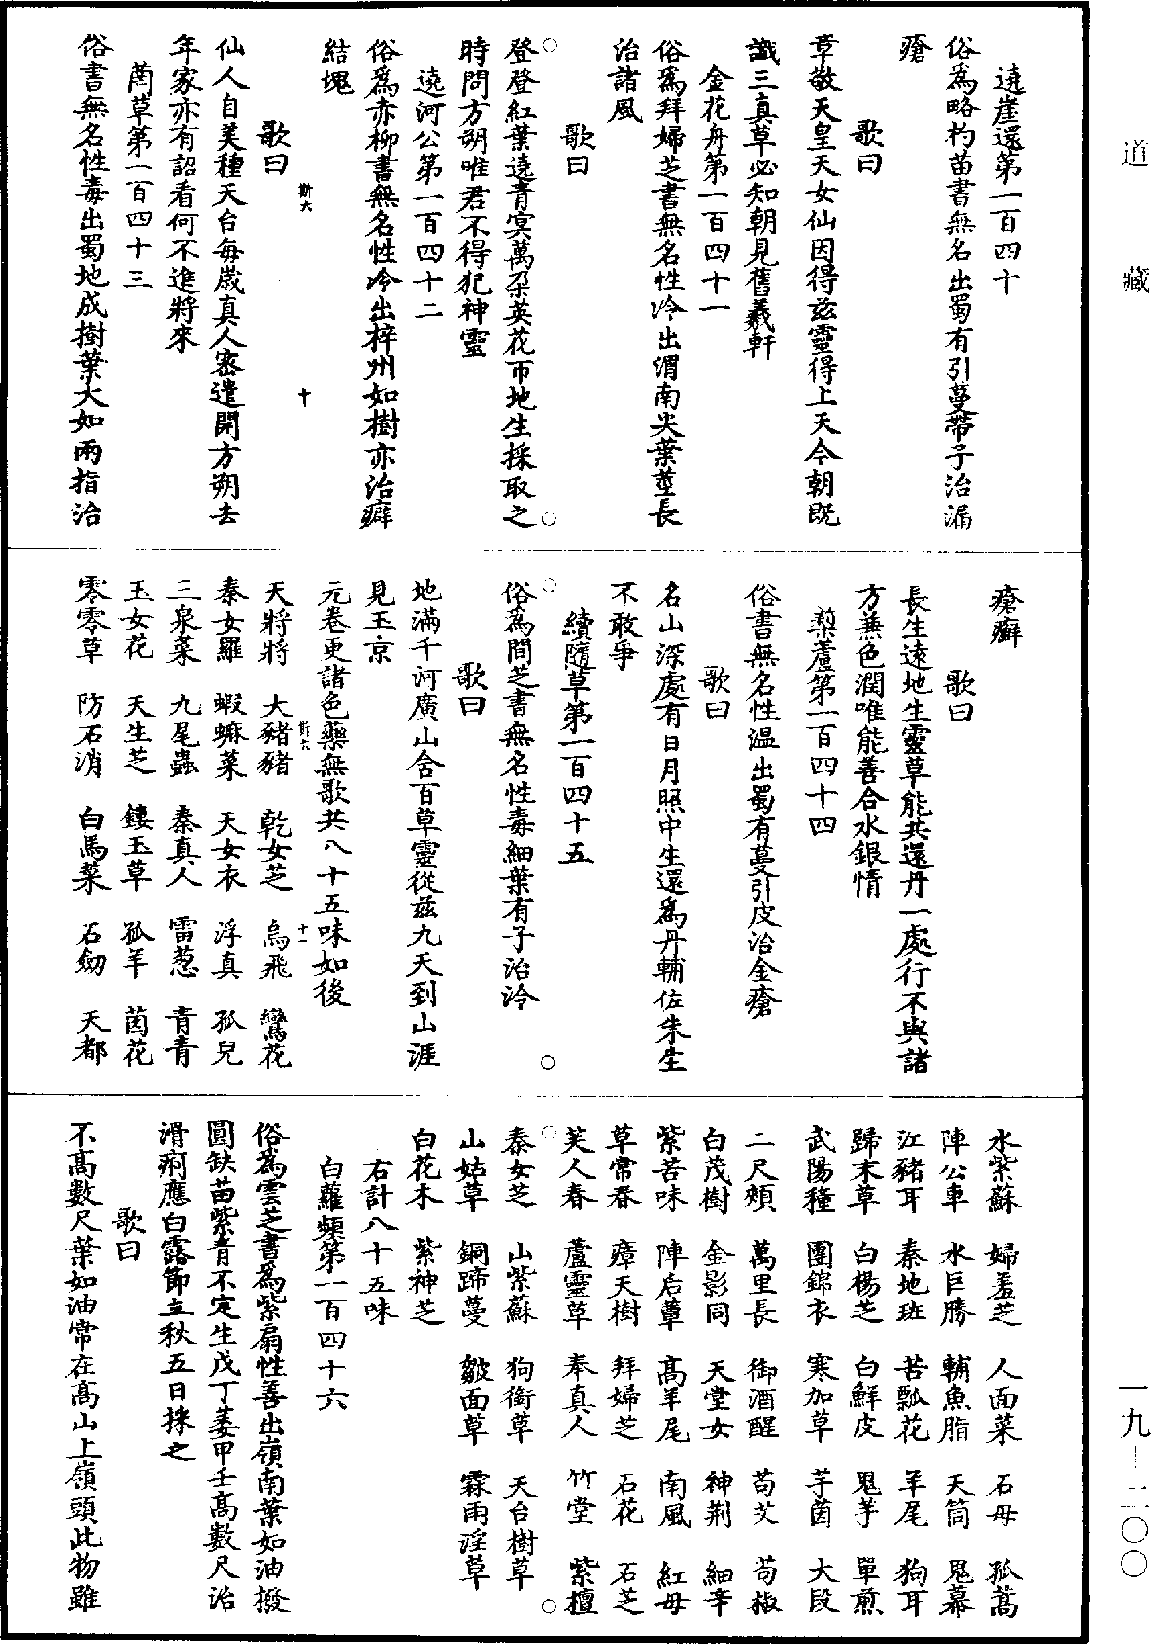 道藏
一九—二〇〇
遶崖還第一百四十
俗爲略杓苗書無名出蜀有引蔓帶子治漏
瘡
歌曰
章敬天皇天女仙因得玆靈得上天今朝旣
識三真草必知朝見舊羲軒
金花舟第一百四十一
俗爲拜婦芝書無名性冷出渭南尖葉莖長
治諸風
歌曰
登登紅葉遶青冥萬朶英花帀地生採取之
時問方朔唯君不得犯神靈
遶河公第一百四十二
俗爲亦柳書無名性冷出梓州如樹亦治癖
結塊
斯六
十
歌曰
仙人自美種天台每歲真人密遣開方朔去
年家亦有詔看何不進將來
蔄草第一百四十三
俗書無名性毒出蜀地成樹葉大如兩指治
瘡癬
歌曰
長生遠地生靈草能共還丹一處行不與諸
方蕪色潤唯能善合水銀情
梨蘆第一百四十四
俗書無名性温出蜀有蔓引皮治金瘡
歌曰
名山深處有日月照中生還爲丹輔佐朱生
不敢爭
續隨草第一百四十五
俗爲間芝書無名性毒細葉有子治冷
歌曰
地滿千河廣山含百草靈從玆九天到山涯
見玉京
元卷更諸色藥無歌共八十五味如後
斯六
十一
天將將 大豬豬 乾女芝 烏飛 鸞花
秦女羅 蝦蟆菜 天女衣 浮真 孤兒
三泉菜 九尾蟲 秦真人 雷葱 青青
玉女花 天生芝 鏤玉草 孤羊 茵花
零零草 防石消 白馬菜 石劒 天都
水紫蘇 婦羞芝 人面菜 石母 孤蒿
陣公車 水巨勝 輔魚脂 天筒 鬼幕
江豬耳 秦地班 苦瓢花 羊尾 狗耳
歸末草 白楊芝 白鮮皮 鬼芋 單煎
武陽穜 團錦衣 寒加草 芋茵 大段
二尺頰 萬里長 御酒醒 苟艾 苟椒
白茂樹 金影同 天堂女 神荆 細辛
紫苦味 陣后蕈 高羊尾 南風 紅母
草常春 瘴天樹 拜婦芝 石花 石芝
芙人春 蘆靈草 奉真人 竹堂 紫檀
泰女芝 山紫蘇 狗銜草 天台樹草
山姑草 銅蹄蔓 皺面草 霖雨淫草
白花木 紫神芝
右計八十五味
白蘿蘱第一百四十六
俗爲雲芝書爲紫扇性善出嶺南葉如油撥
圓缺苗紫青不定生戊丁萎甲壬高數尺治
滑痢應白露節立秋五日採之
歌曰
不高數尺葉如油常在高山上嶺頭此物雖